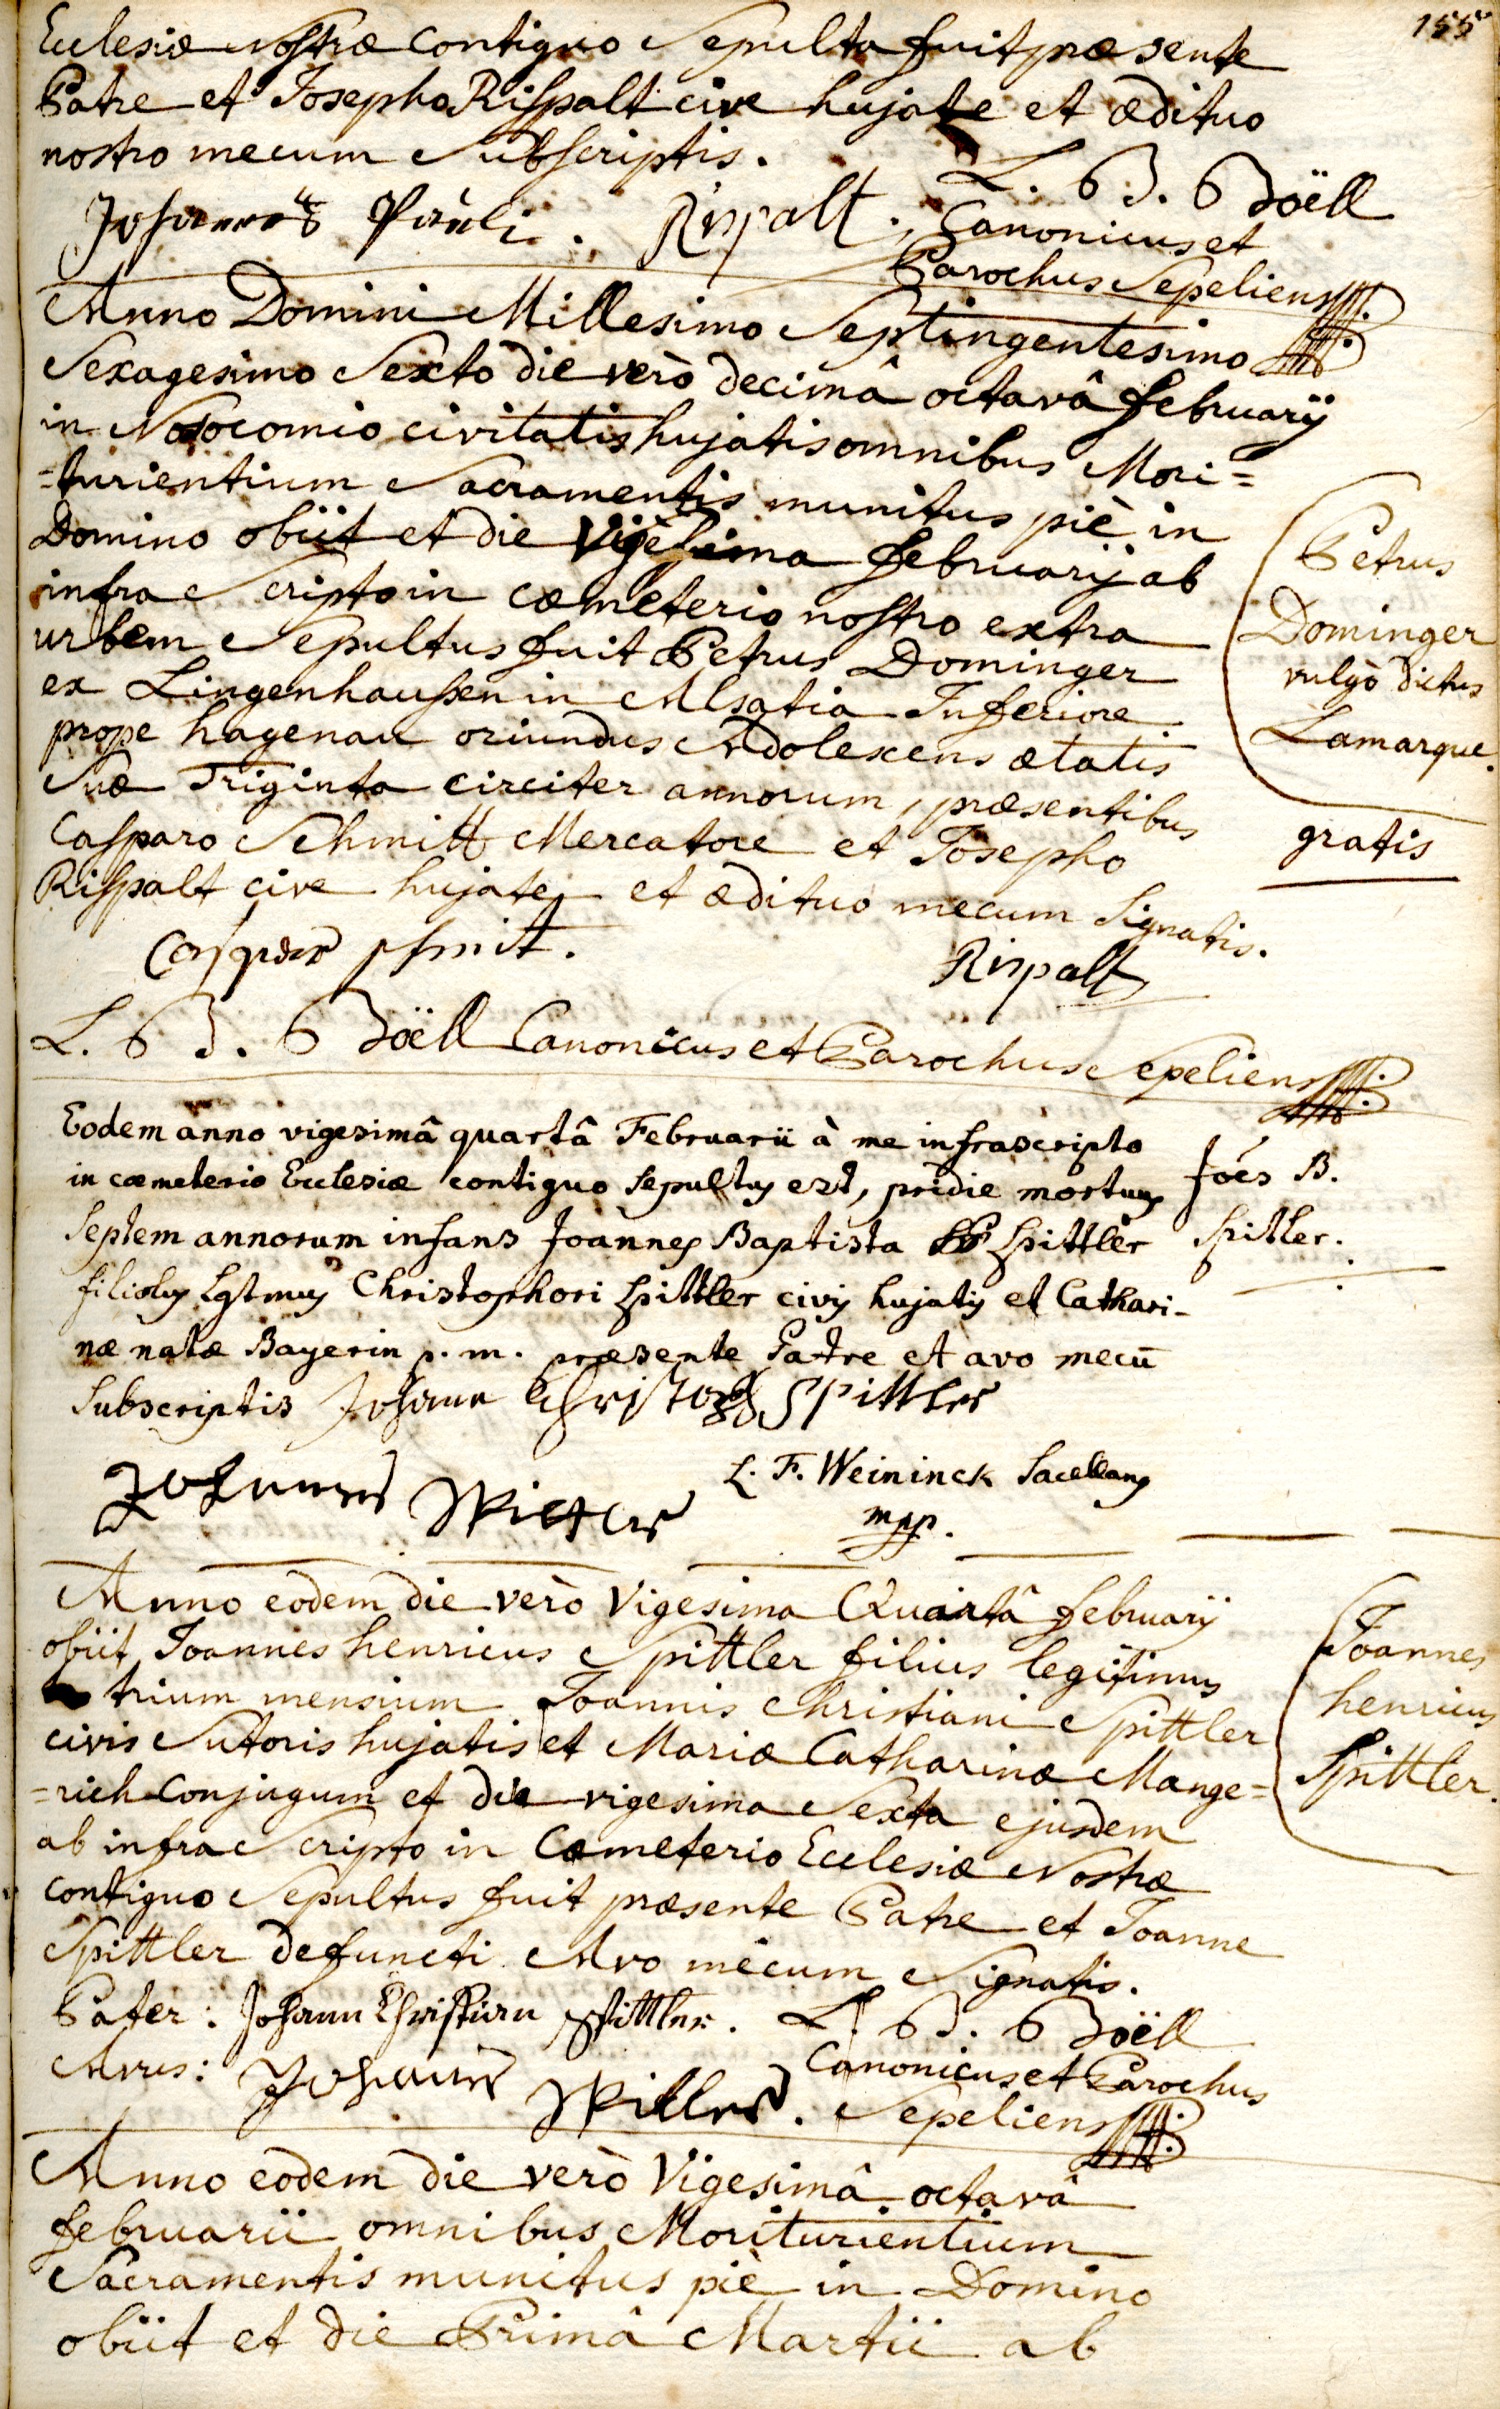 155
Ecclesiæ Nostræ Contiguo Sepulta fuit præsente
Patre et Josepho Rispalt cive hujate et ædituo
nostro mecum Subscriptis.
Johannes Pauli. Rispalt. L. B. Boëll
Canonicus et
Parochus Sepeliens
Anno Domini Millesimo Septingentesimo
Sexagesimo Sexto die verò decimâ octavâ februarij
in Nosocomio civitatis hujatis omnibus Mori=
=turientium Sacramentis munitus piè in
Domino obiit et die Vigesima februarij ab
infra Scripto in cæmeterio nostro extra
urbem Sepultus fuit Petrus Dominger
ex Lingenhaussen in Alsatia Inferiore
prope hagenau oriundus Adolescens ætatis
Suæ Triginta circiter annorum, præsentibus
Casparo Schmitt Mercatore et Josepho
Rispalt cive hujate et ædituo mecum Signatis.
Petrus
Dominger
vulgò dictus
Lamarque.
gratis
Casper schmit. Rispalt
L. B. Boëll Canonicus et Parochus Sepeliens
Eodem anno vigesimâ quartâ Februarii à me infrascripto
in cæmeterio Ecclesiæ contiguo sepultus est, pridie mortuus
Septem annorum infans Joannes Baptista Spittler
filiolus Lgtmus Christophori Spittler civis hujatis et Cathari-
næ natæ Bayerin p. m. præsente Patre et avo mecū
Subscriptis Johann Christoph Spittler
Joes B.
Spitler.
Johannes Spittler L. F. Weininck Sacellang
mpp.
Anno eodem die verò Vigesima Quartâ februarij
obiit Joannes henricus Spittler filius legitimus
trium mensium Joannis Christiani Spittler
civis Sutoris hujatis et Mariæ Catharinæ Mange=
=rich Conjugum et die vigesima Sexta ejusdem
ab infra Scripto in Cæmeterio Ecclesiæ Nostræ
contiguo Sepultus fuit præsente Patre et Joanne
Spittler defuncti Avo mecum Signatis.
Joannes
henricus
Spittler.
Pater: Johann Christian Spittler. L. B. Boëll
Avus: Johannes Spittler. Canonicus et Parochus
Sepeliens
Anno eodem die verò Vigesimâ octavâ
februarii omnibus Moriturientium
Sacramentis munitus piè in Domino
obiit et die Primâ Martii ab